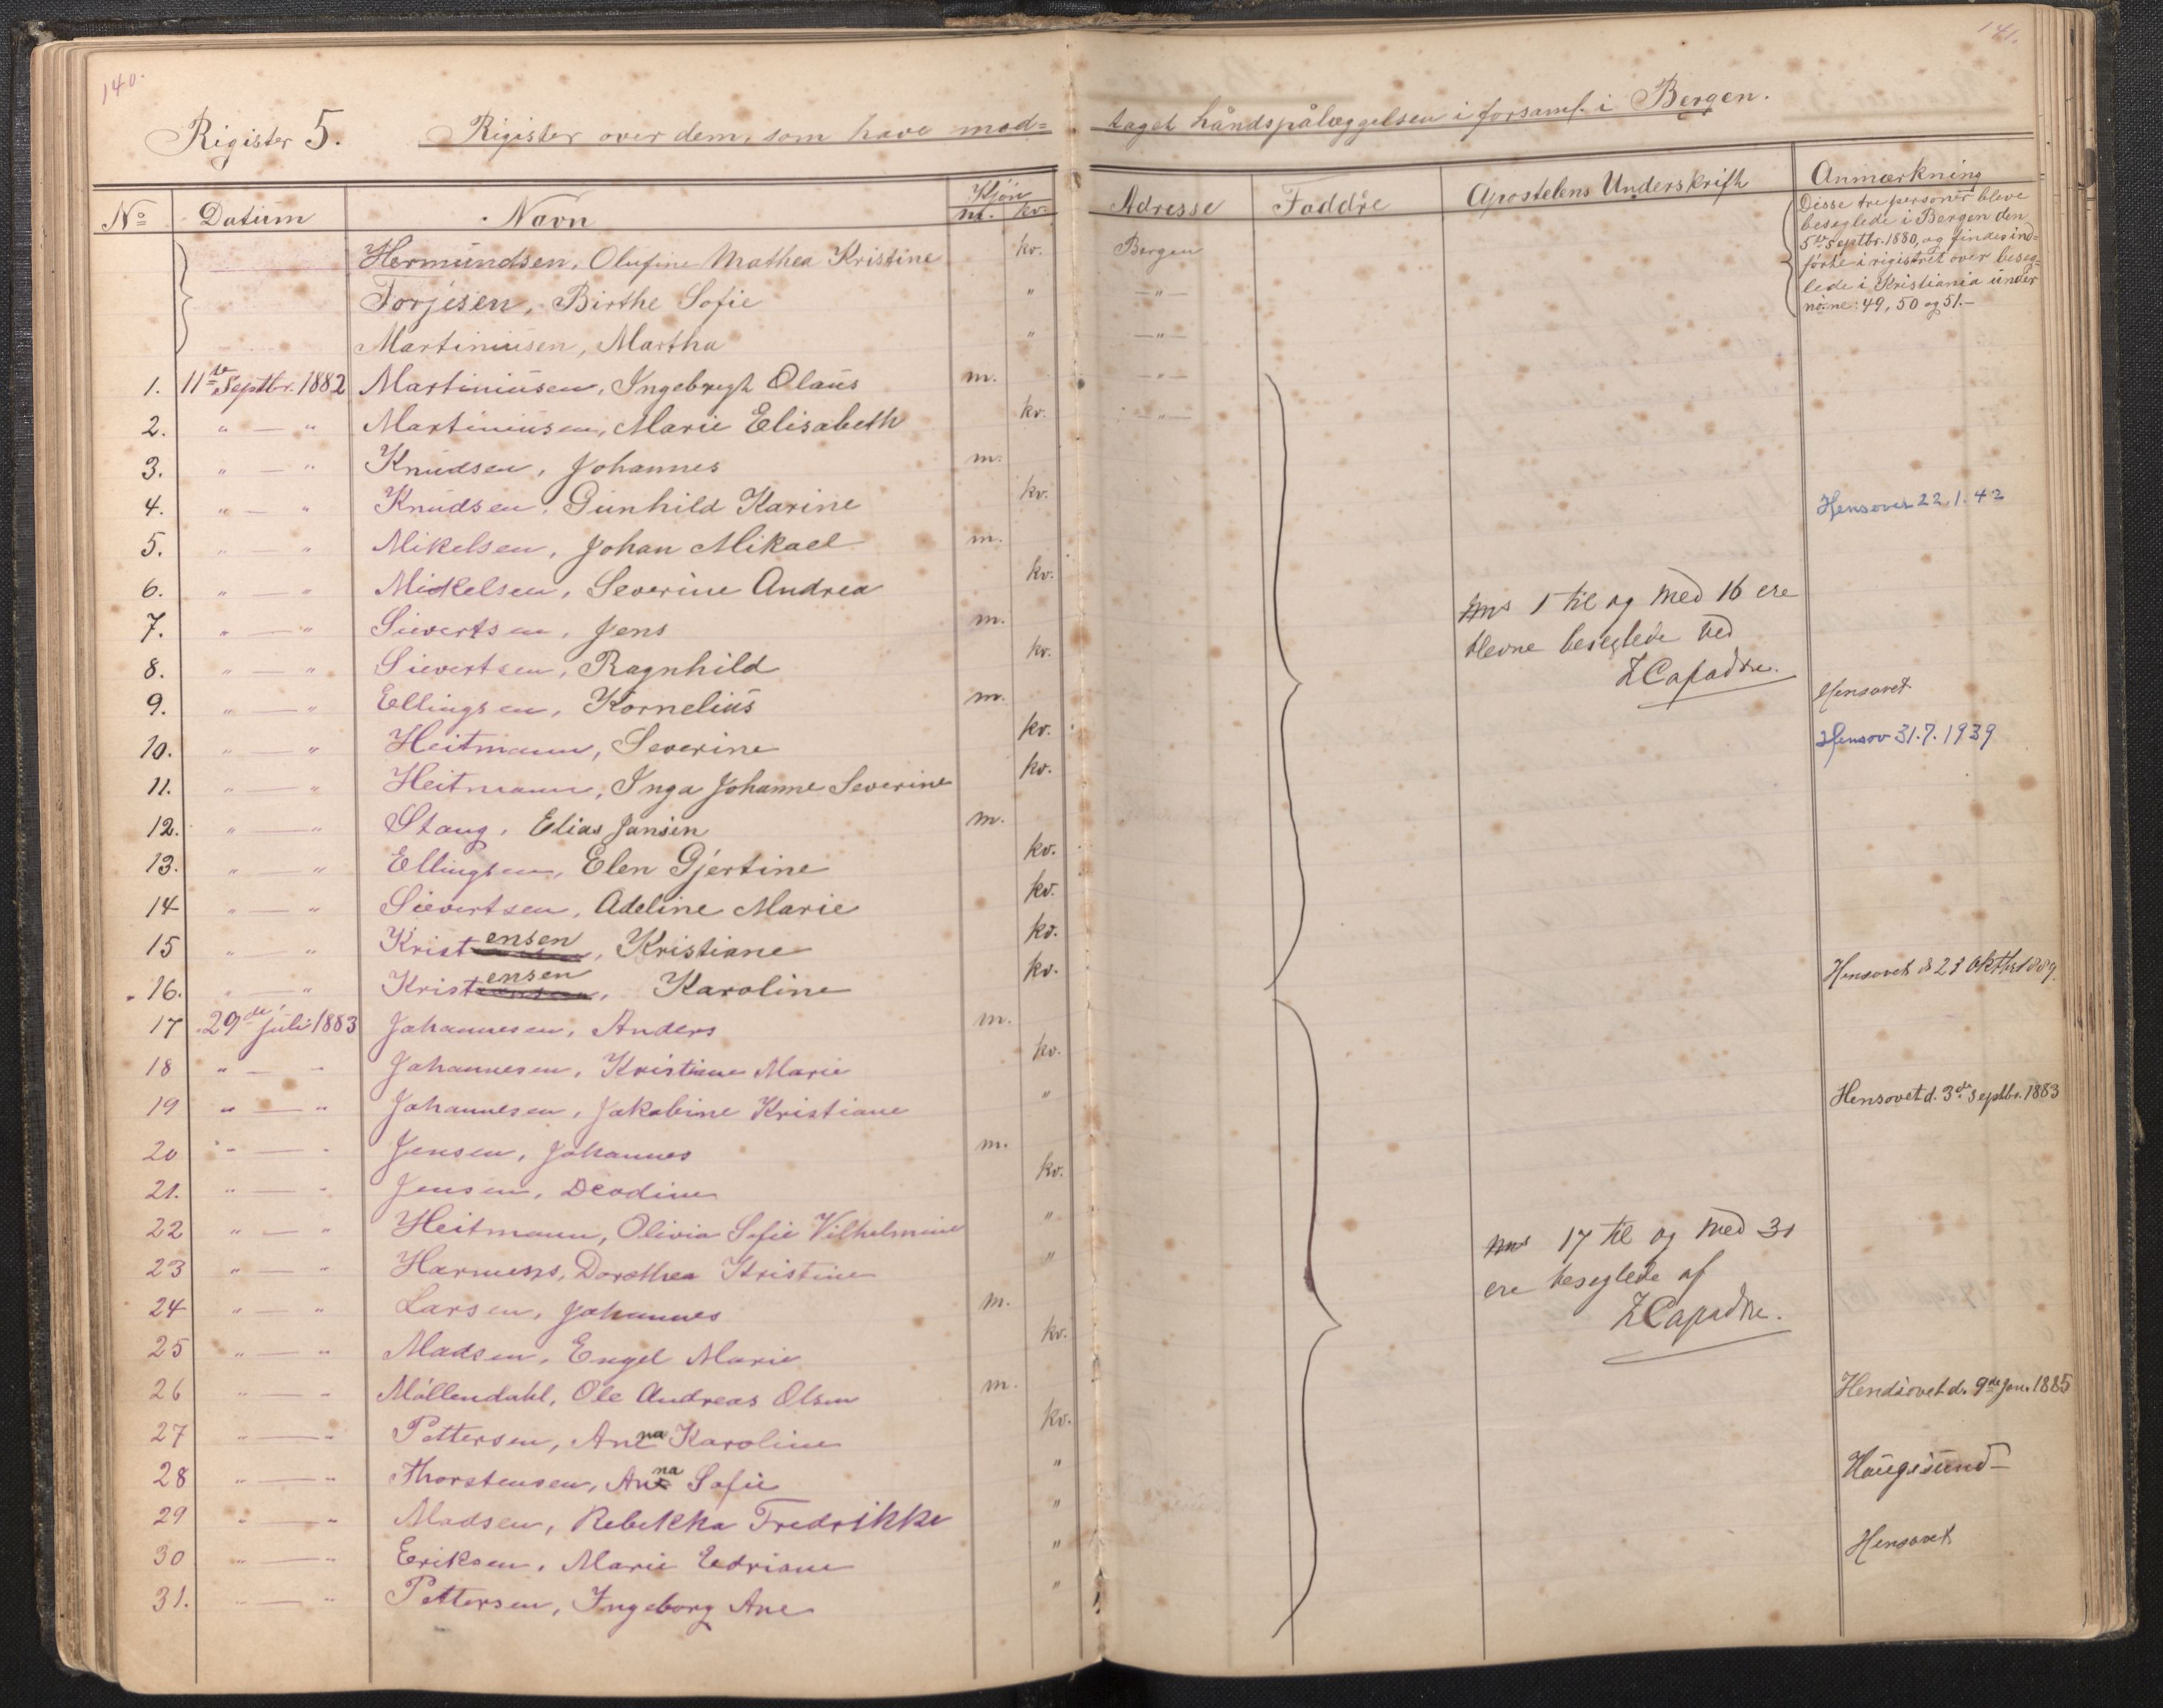 140.
141.
Rigister 5. Rigister over dem, som have mod= taget håndspålæggelsen i forsaml. i Bergen.
No Datum Navn Kjøn m. kv. Adresse Faddre Apostelens Underskrift Anmærkning
Hermundsen, Olufine Mathea Kristine kv. Bergen
Torjesen, Birthe Sofie " —"—
Martiniusen, Martha " —"—
Disse tre personer bleve
beseglede i Bergen den
5te Septbr. 1880, og findes ind=
førte i rigistret over beseg=
lede i Kristiania under
no.ne: 49, 50 og 51.—
1. 11te Septbr. 1882 Martiniusen, Ingebregt Olaus m. —"—
2. " — " Martiniusen, Marie Elisabeth kv. —"—
3. " — " Knudsen, Johannes m.
4. " — " Knudsen, Gunhild Karine kv. Hensovet 22.1.42
5. " — " Mikelsen, Johan Mikael m.
6. " — " Mickelsen, Severine Andrea kv.
7. " — " Sievertsen, Jens m.
8. " — " Sievertsen, Ragnhild kv.
9. " — " Ellingsen, Kornelius m. Hensovet
10. " — " Heitmann, Severine kv. Hensov 31.7.1939
11. " — " Heitmann, Inga Johanne Severine kv.
12. " — " Stang, Elias Jansen m.
13. " — " Ellingsen, Elen Gjertine kv.
14 " — " Sievertsen, Adeline Marie kv.
15 " — " Kristensen, Kristiane kv.
16. " — " Kristensen, Karoline kv. Hensovet d 23 Oktbr 1889.
1 til og med 16 ere
blevne beseglede ved
Z Capadose.
17 29de juli 1883 Johannesen, Anders m.
18 " — " Johannesen, Kristiane Marie kv.
19 " — " Johannesen, Jakobine Kristiane " Hensovet d. 3de Septbr. 1883
20 " — " Jensen, Johannes m.
21. " — " Jensen, Deodine kv.
22 " — " Heitmann, Olivia Sofie Vilhelmine "
23 " — " Harmens, Dorothea Kristine "
24 " — " Larsen, Johannes m.
25 " — " Madsen, Engel Marie kv.
26 " — " Möllendahl, Ole Andreas Olsen m. Hendsovet d. 9de Jan. 1885
27 " — " Pettersen, Anna Karoline kv.
28 " — " Thorstensen, Anna Sofie " Haugesund
29 " — " Madsen, Rebekka Fredrikke "
30 " — " Eriksen, Marie Edriane " Hensovet
31. " — " Pettersen, Ingeborg Ane "
17 til og med 31
ere beseglede af
Z Capadose.